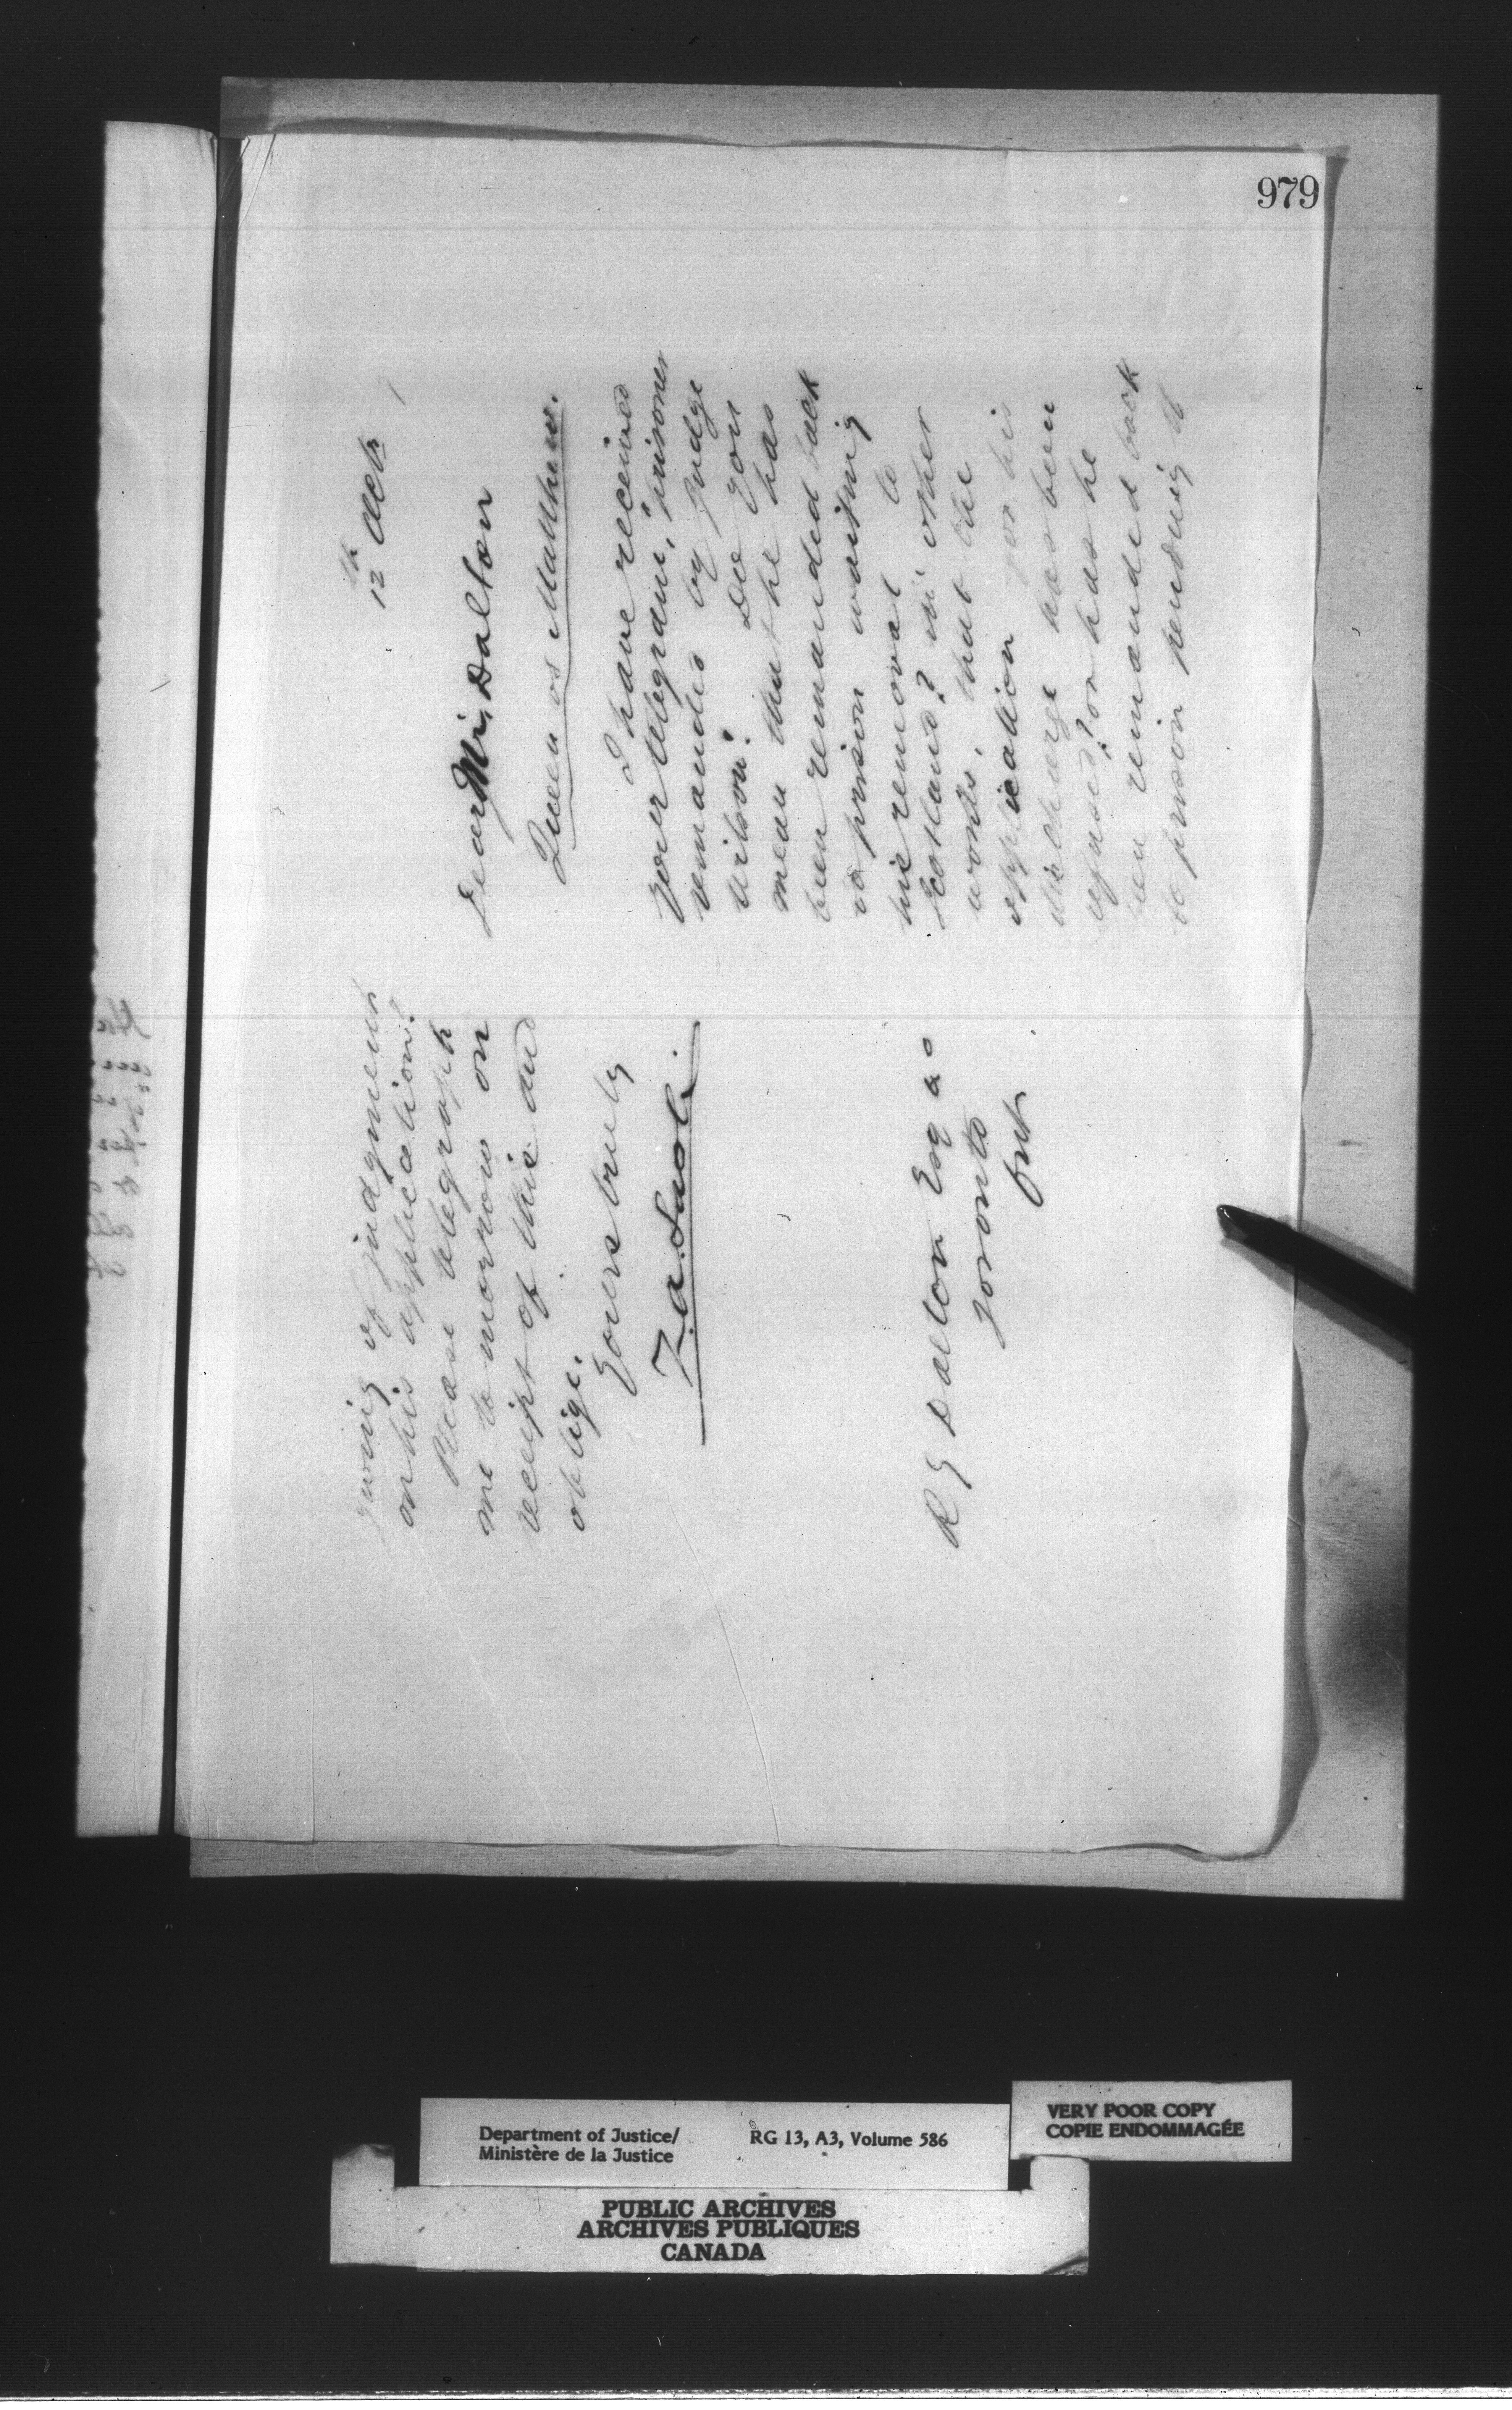 979
12th Octr
Dear Mr. Dalton
Queen vs Matthew.
I have received
your telegram, "prisoner
remanded by Judge
Wilson." Do you
mean that he has
been remanded back
to prison waiting
his removal to
Scotland? in other
words, that the
application for his
discharge has been
refused? or has he
been remanded back
to prison pending th
giving of judgment
on his application?
Please telegraph
me to morrow on
receipt of this and
oblige.
Yours truly
R G Dalton Esq
Toronto
Ont
Department of Justice/
Ministère de la Justice
RG 13, A3, Volume 586
VERY POOR COPY
COPIE ENDOMMAGÉE
PUBLIC ARCHIVES
ARCHIVES PUBLIQUES
CANADA